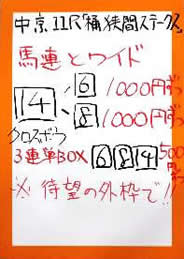 中京11R「桶狭間ステークス」
馬連とワイド
6 1000円ずつ
14、
8 1000円ずつ
クロスボウ
3連単BOX 6 8 14 500円ずつ
※待望の外枠で!!